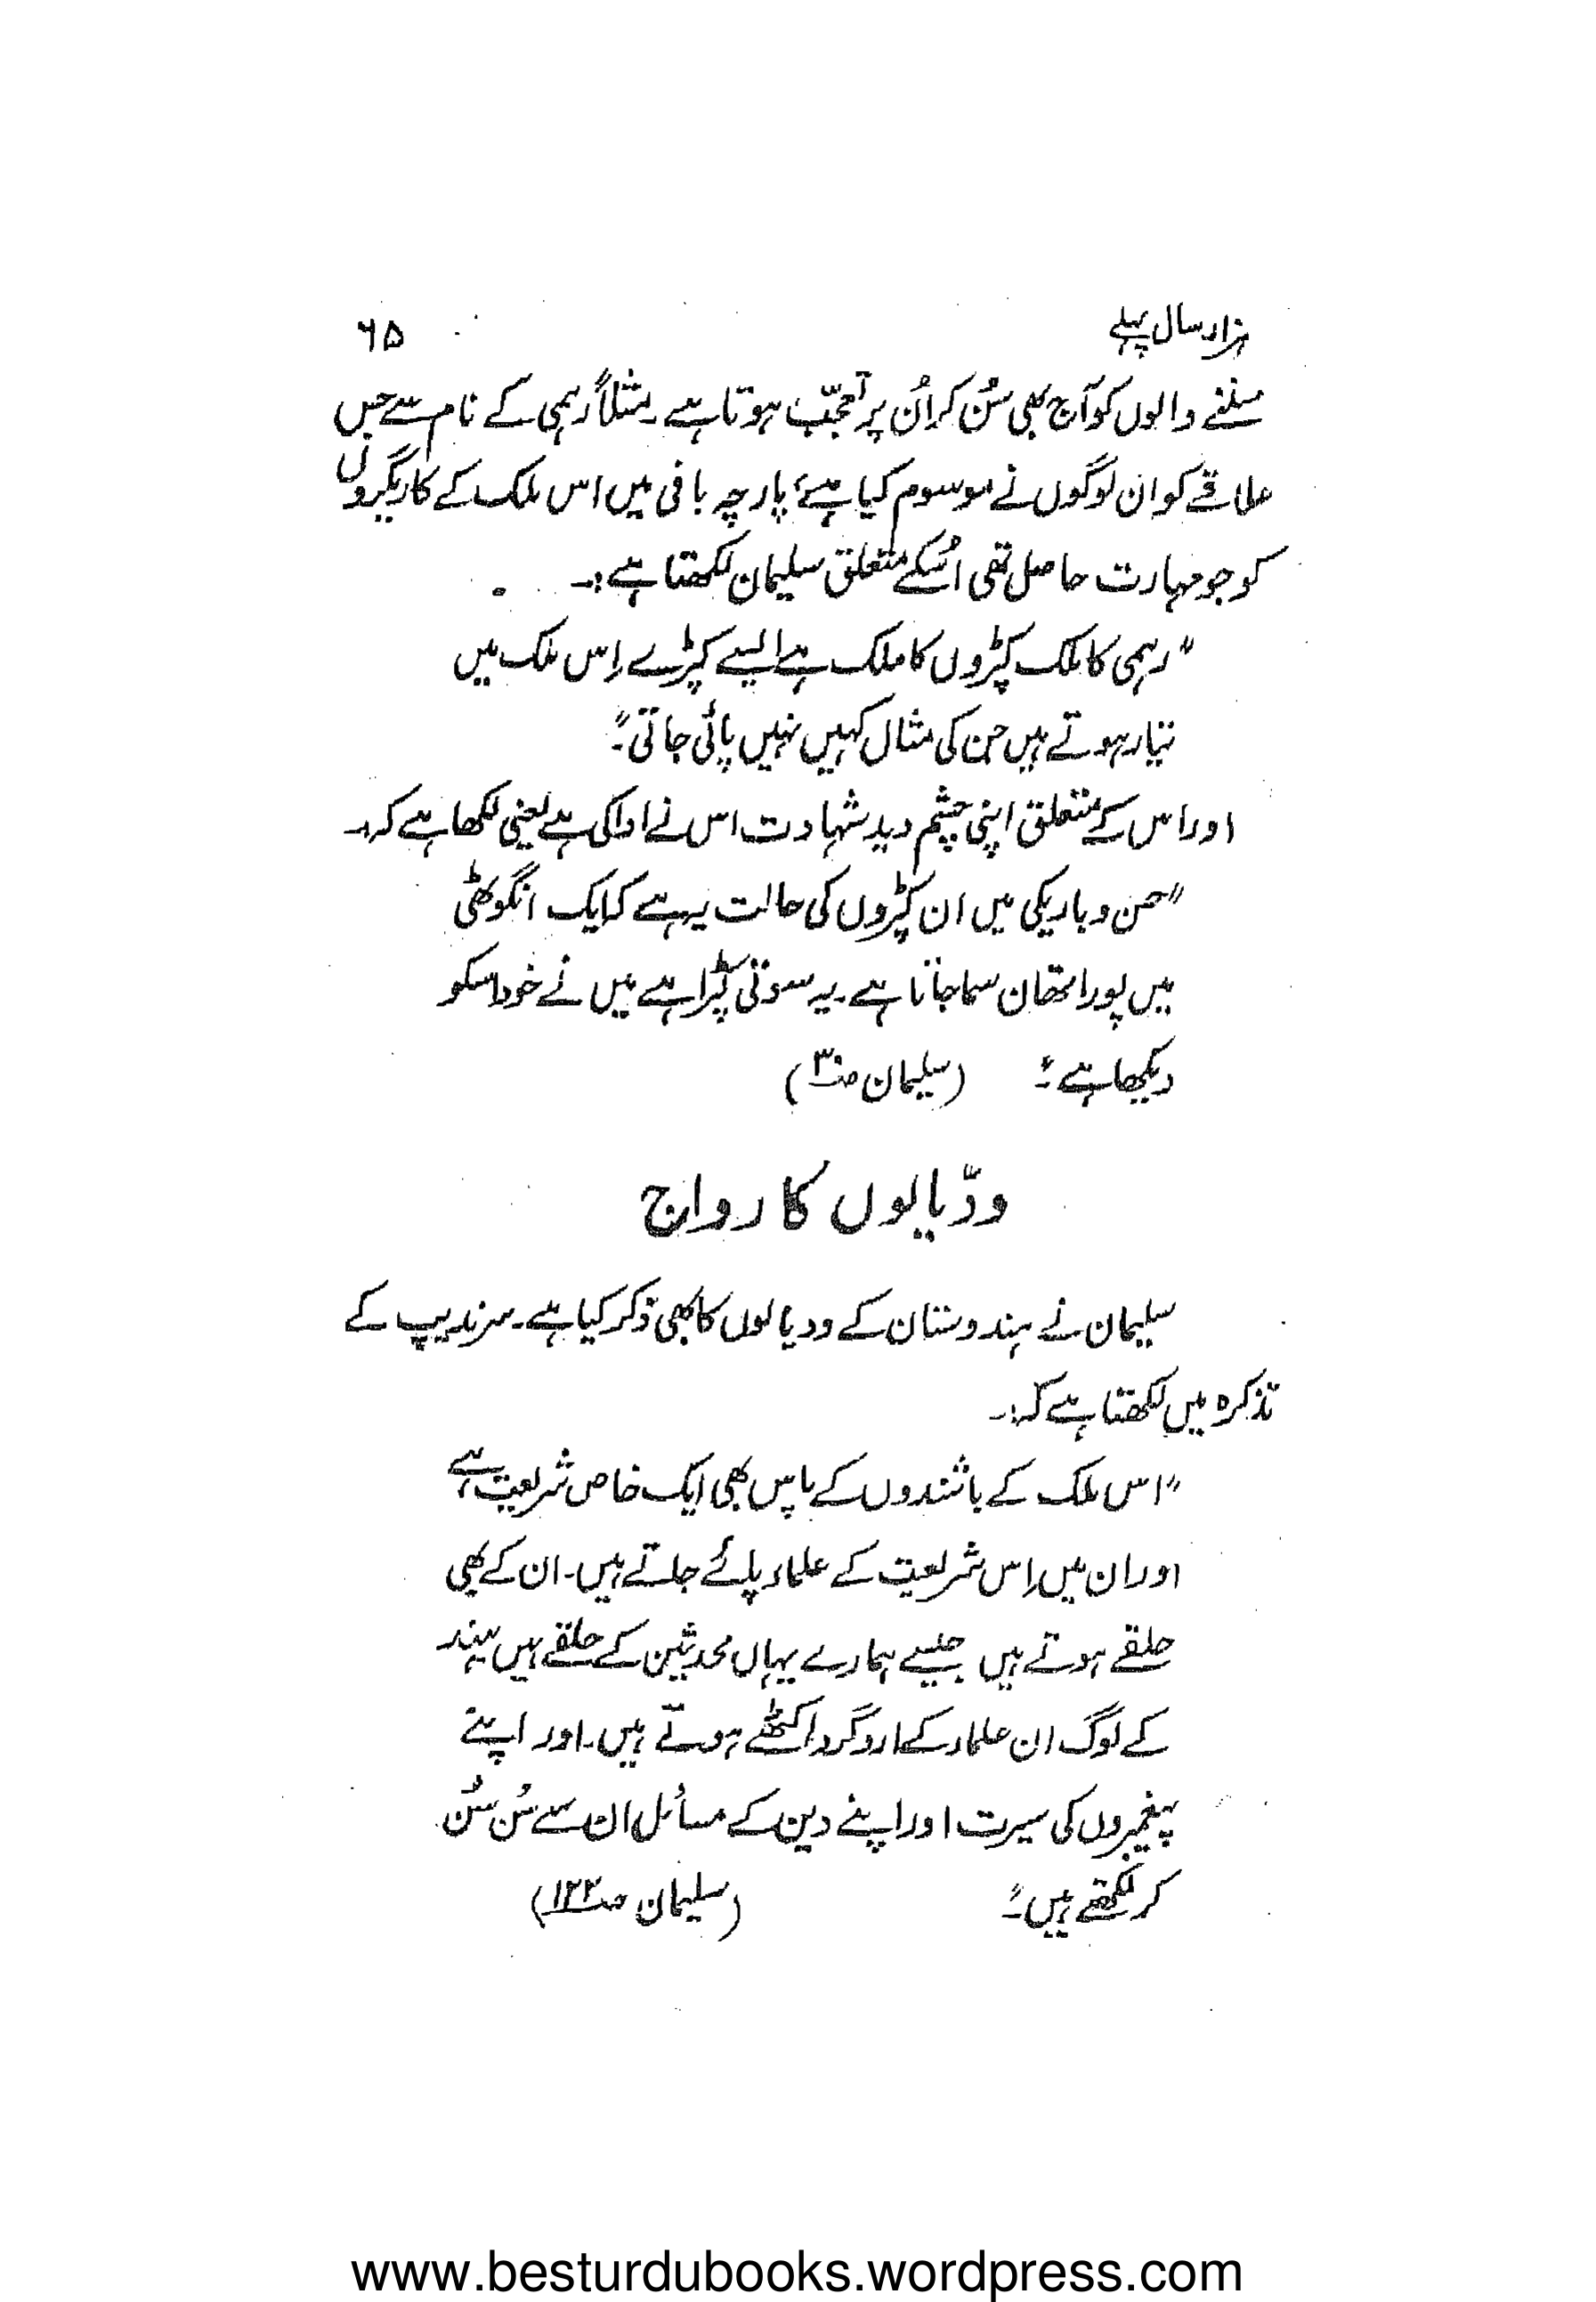 ہزار سال پہلے ۶۵
سلنے والوں کو آج بھی سُن کر اُن پر تعجّب ہوتا ہے۔ مثلاً رہمی کے نام سے جس
علاقے کو ان لوگوں نے موسوم کیا ہے، پارچہ بافی میں اس ملک کے کاریگروں
کو جو مہارت حاصل تھی اُسکے متعلق سلیمان لکھتا ہے:۔
"رہمی کا ملک کپڑوں کا ملک ہے ایسے کپڑے اِس ملک میں
تیار ہوتے ہیں جن کی مثال کہیں نہیں پائی جاتی۔"
اور اس کے متعلق اپنی چشم دید شہادت اس نے ادا کی ہے یعنی لکھا ہے کہ:۔
"حسن و باریکی میں ان کپڑوں کی حالت یہ ہے کہ ایک انگوٹھی
میں پورا تھان سما جاتا ہے۔ یہ سوتی کپڑا ہے میں نے خود اسکو
دیکھا ہے۔" (سلیمان صـ۳۰)
ودّیالوں کا رواج
سلیمان نے ہندوستان کے ودیالوں کا بھی ذکر کیا ہے۔ سرندیپ کے
تذکرہ میں لکھتا ہے کہ:۔
"اس ملک کے باشندوں کے پاس بھی ایک خاص شریعت ہے
اور ان میں اِس شریعت کے علماء پائے جاتے ہیں۔ ان کے بھی
حلقے ہوتے ہیں جیسے ہمارے یہاں محدثین کے حلقے ہیں ہند
کے لوگ ان علماء کے ارد گرد اکٹھے ہوتے ہیں۔ اور اپنے
پیغمبروں کی سیرت اور اپنے دین کے مسائل ان سے سُن سُن
کر لکھتے ہیں۔" (سلیمان صـ۱۲۲)
www.besturdubooks.wordpress.com